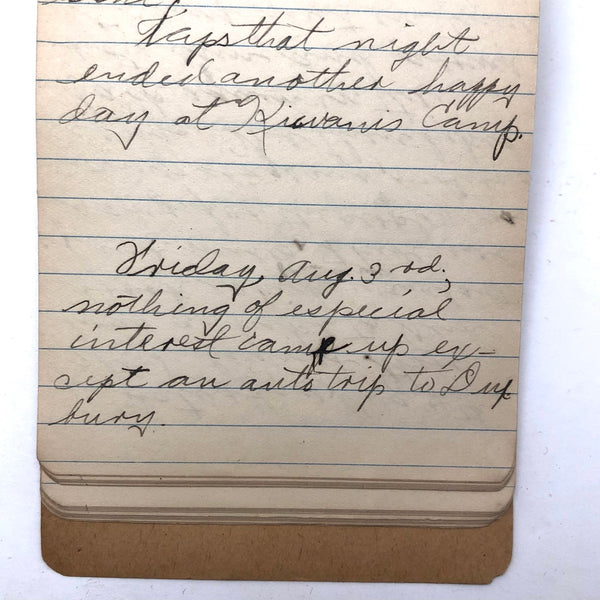 Taps that night
ended another happy
day at Kiwanis Camp.
Friday, Aug. 3rd.,
nothing of especial
interest came up ex-
cept an auto trip to Dux
bury.